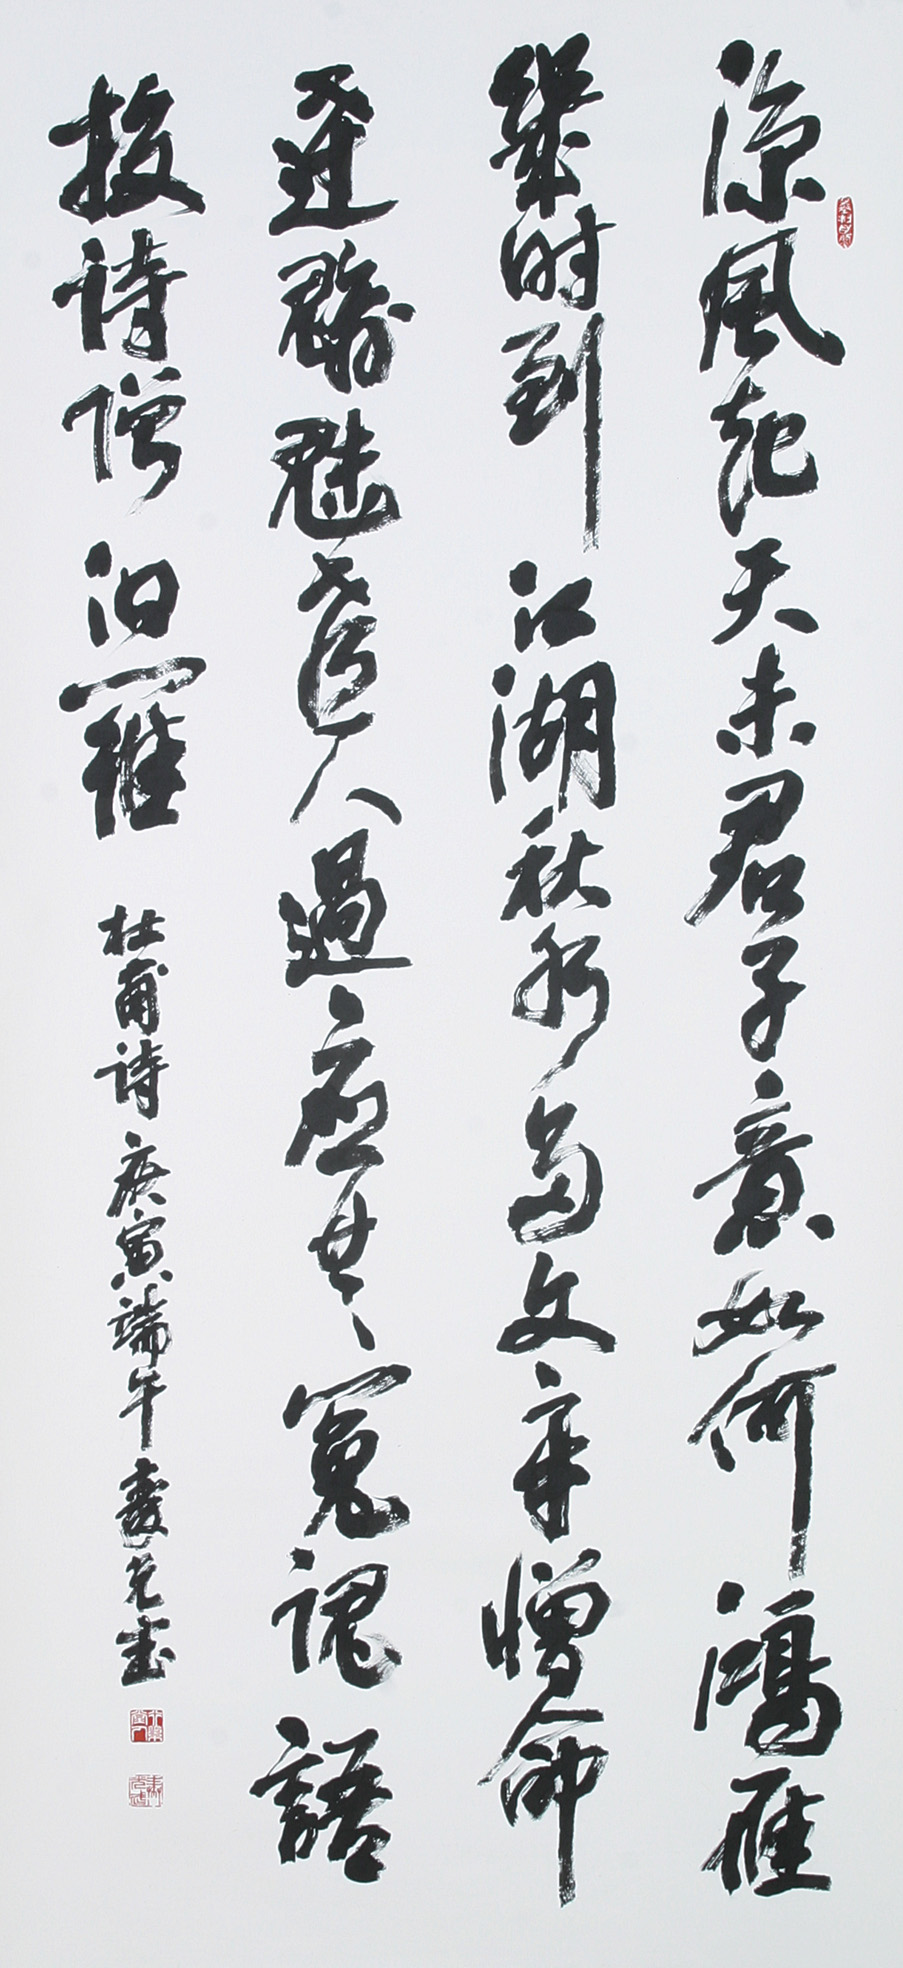 涼风起天末君子意如何鸿雁
幾时到江湖秋水多文章憎命
達魑魅喜人過应共冤魂語
投诗赠汨羅
杜甫诗庚寅端午書